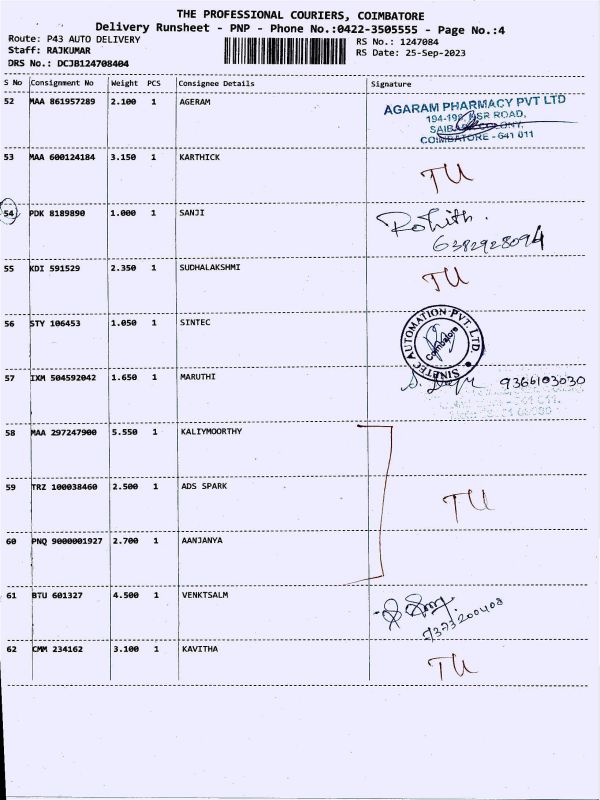 THE PROFESSIONAL COURIERS, COIMBATORE
Delivery Runsheet - PNP - Phone No.:0422-3505555 - Page No.:4
Route: P43 AUTO DELIVERY
RS No.: 1247084
Staff: RAJKUMAR
RS Date: 25-Sep-2023
DRS No.: DCJB124708404
S No Consignment No Weight PCS Consignee Details Signature
52 MAA 861957289 2.100 1 AGERAM
AGARAM PHARMACY PVT LTD
194-198, NSR ROAD,
COLONY,
COIMBATORE - 641 011
53 MAA 600124184 3.150 1 KARTHICK TU
54 PDK 8189890 1.000 1 SANJI Rohith.
6382928094
55 KDI 591529 2.350 1 SUDHALAKSHMI TU
56 STY 106453 1.050 1 SINTEC
SINETEC AUTOMATION PVT. LTD.
Coimbatore
57 IXM 504592042 1.650 1 MARUTHI 9366103030
58 MAA 297247900 5.550 1 KALIYMOORTHY
59 TRZ 100038460 2.500 1 ADS SPARK TU
60 PNQ 9000001927 2.700 1 AANJANYA
61 BTU 601327 4.500 1 VENKTSALM
7373200408
62 CMM 234162 3.100 1 KAVITHA TU